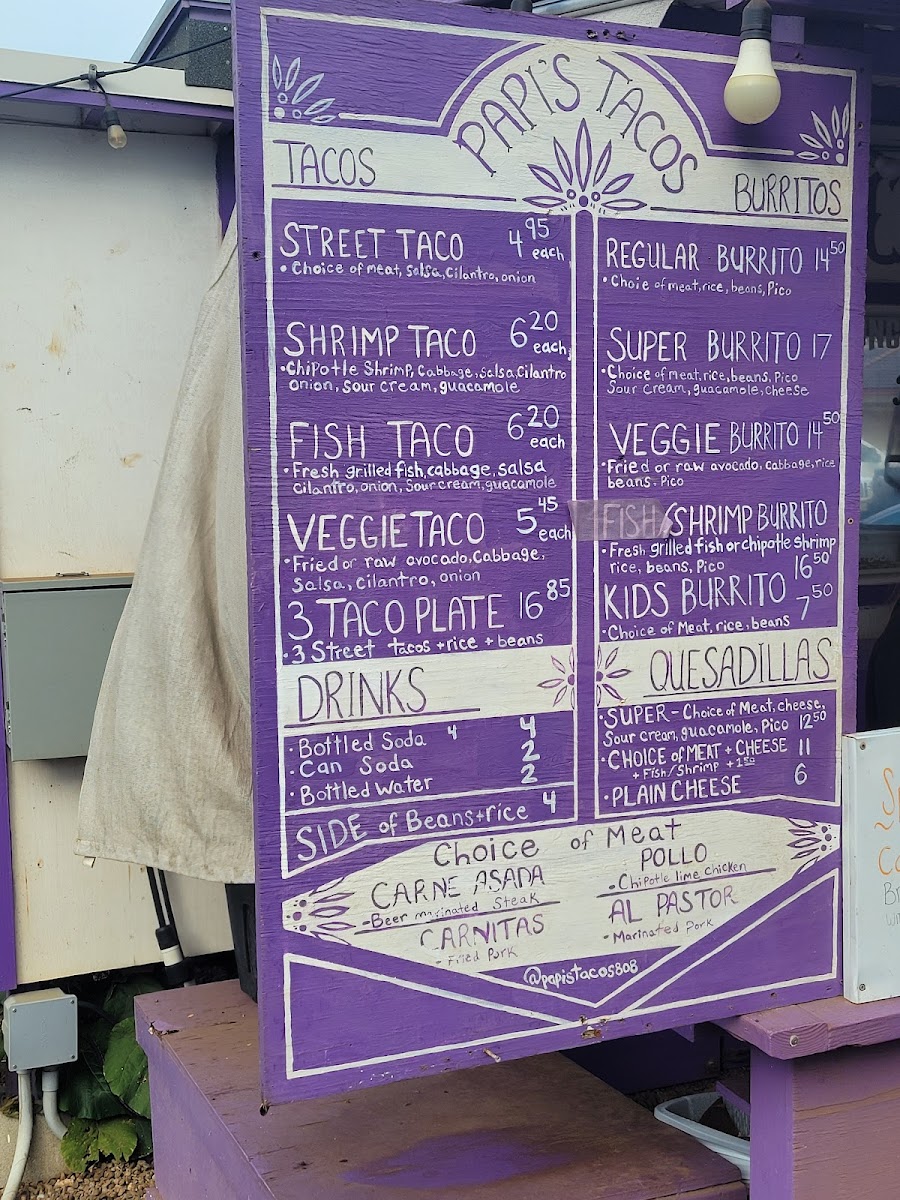 PAPI'S TACOS
TACOS
STREET TACO 4 95 each
• Choice of meat, salsa, cilantro, onion
SHRIMP TACO 6 20 each
• Chipotle Shrimp, Cabbage, salsa, Cilantro
onion, sour cream, guacamole
FISH TACO 6 20 each
• Fresh grilled fish, cabbage, salsa
cilantro, onion, sour cream, guacamole
VEGGIE TACO 5 45 each
• Fried or raw avocado, cabbage,
Salsa, cilantro, onion
3 TACO PLATE 16 85
• 3 Street tacos + rice + beans
DRINKS
• Bottled Soda 4 4
• Can Soda 2
• Bottled Water 2
SIDE of Beans + rice 4
BURRITOS
REGULAR BURRITO 14 50
• Choie of meat, rice, beans, Pico
SUPER BURRITO 17
• Choice of meat, rice, beans, Pico
Sour cream, guacamole, cheese
VEGGIE BURRITO 14 50
• Fried or raw avocado, cabbage, rice
beans, Pico
FISH/SHRIMP BURRITO
• Fresh grilled fish or chipotle shrimp
rice, beans, Pico 16 50
KIDS BURRITO 7 50
• Choice of Meat, rice, beans
QUESADILLAS
• SUPER - Choice of Meat, cheese,
Sour cream, guacamole, Pico 12 50
• CHOICE of MEAT + CHEESE 11
+ Fish/Shrimp + 1 50
• PLAIN CHEESE 6
Choice of Meat
CARNE ASADA
- Beer marinated Steak
CARNITAS
- Fried Pork
POLLO
- Chipotle lime chicken
AL PASTOR
- Marinated Pork
@papistacos808